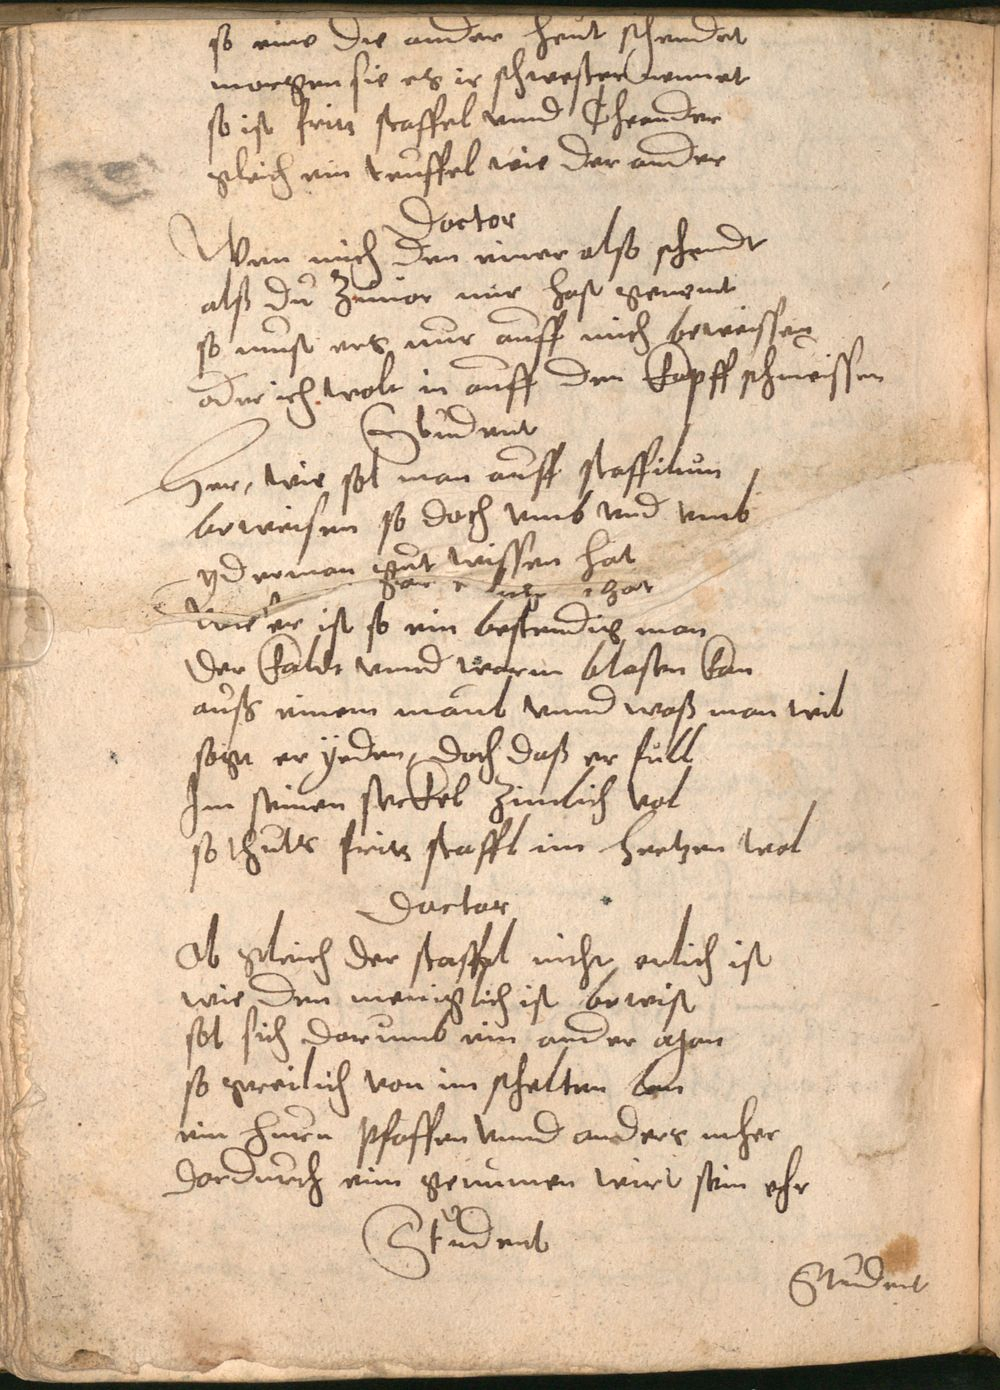 so eine die ander heut schendet
morgen sie es ir schwester nennet
so ist fritz staffel vnnd Theander
gleich ein teuffel wie der ander
Doctor
Wen mich den einer also schendt
alß du zuuor mir hast genent
so must ers nur auff mich beweissen
oder ich wolt in auff den kopff schmeissen
Student
Her, wie sol man auff staffilum
beweisen so doch vmb vnd vmb
yderman gut wissen hat
gar
Wie er ist so ein bestendig man
der kaldt vnnd warm blasen kan
auß einem maul vnnd waß man wil
sagt er yeden, doch daß er füll
Im seinen seckel zimlich vol
so thutts fritz staffl im hertzen wol
Doctor
Ob gleich der staffel nicht erlich ist
wie den meniglich ist bewist
sol sich darumb ein ander
so greilich von im schelten lan
ein huren pfaffen vnnd anders mher
dardurch eim genumen wirt sein ehr
Student
Student